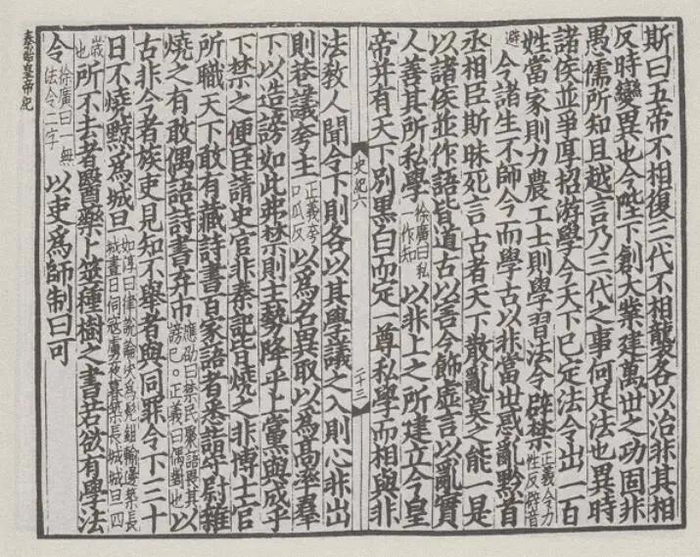 斯曰五帝不相復三代不相襲各以治非其相
反時變異也今陛下創大業建萬世之功固非
愚儒所知且越言乃三代之事何足法也異時
諸侯並爭厚招游學今天下已定法令出一百
姓當家則力農工士則學習法令辟禁正義令力性反辟音
避今諸生不師今而學古以非當世惑亂黔首
丞相臣斯昧死言古者天下散亂莫之能一是
以諸侯並作語皆道古以害今飾虛言以亂實
人善其所私學徐廣曰私一作知以非上之所建立今皇
帝并有天下別黑白而定一尊私學而相與非
史紀六
二十三
法教人聞令下則各以其學議之入則心非出
則巷議夸主正義夸口瓜反以為名異取以為高率羣
下以造謗如此弗禁則主勢降乎上黨與成乎
下禁之便臣請史官非秦記皆燒之非博士官
所職天下敢有藏詩書百家語者悉詣守尉雜
燒之有敢偶語詩書弃市應劭曰禁民聚語畏其謗已。正義曰偶對也以
古非今者族吏見知不舉者與同罪令下三十
日不燒黥為城旦如淳曰律說論決為髡鉗輸邊築長城晝日伺寇虜夜暮築長城城旦四
歲也所不去者醫藥卜筮種樹之書若欲有學法
令徐廣曰一無法令二字以吏為師制曰可
秦始皇帝紀